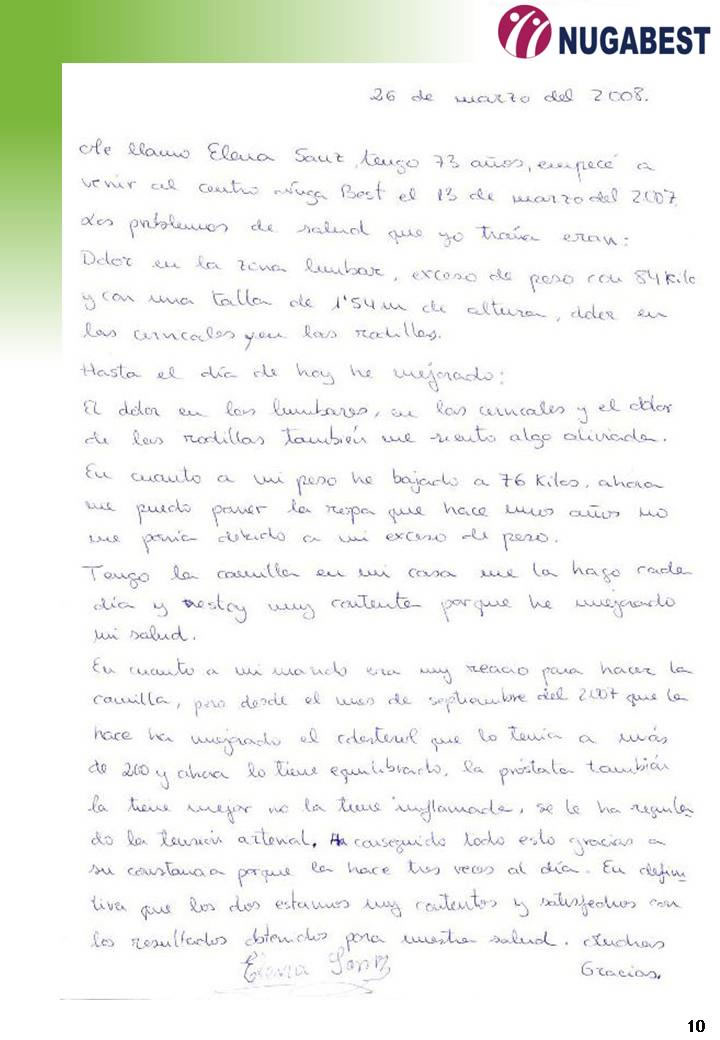 NUGABEST
26 de marzo del 2008.
Me llamo Elena Sanz, tengo 73 años, empecé a
venir al centro Nuga Best el 13 de marzo del 2007.
Los problemas de salud que yo traía eran:
Dolor en la zona lumbar, exceso de peso con 84 kilo
y con una talla de 1'54 m de altura, dolor en
las cervicales y en las rodillas.
Hasta el día de hoy he mejorado:
El dolor en las lumbares, en las cervicales y el dolor
de las rodillas también me siento algo aliviada.
En cuanto a mi peso he bajado a 76 kilos, ahora
me puedo poner la ropa que hace unos años no
me ponía debido a mi exceso de peso.
Tengo la camilla en mi casa me la hago cada
día y estoy muy contenta porque he mejorado
mi salud.
En cuanto a mi marido era muy reacio para hacer la
camilla, pero desde el mes de septiembre del 2007 que la
hace ha mejorado el colesterol que lo tenía a más
de 200 y ahora lo tiene equilibrado, la próstata también
la tiene mejor no la tiene inflamada, se le ha regula
do la tensión arterial. Ha conseguido todo esto gracias a
su constancia porque la hace tres veces al día. En defini
tiva que los dos estamos muy contentos y satisfechos con
los resultados obtenidos para nuestra salud. Muchas
Gracias.
Elena Sanz
10